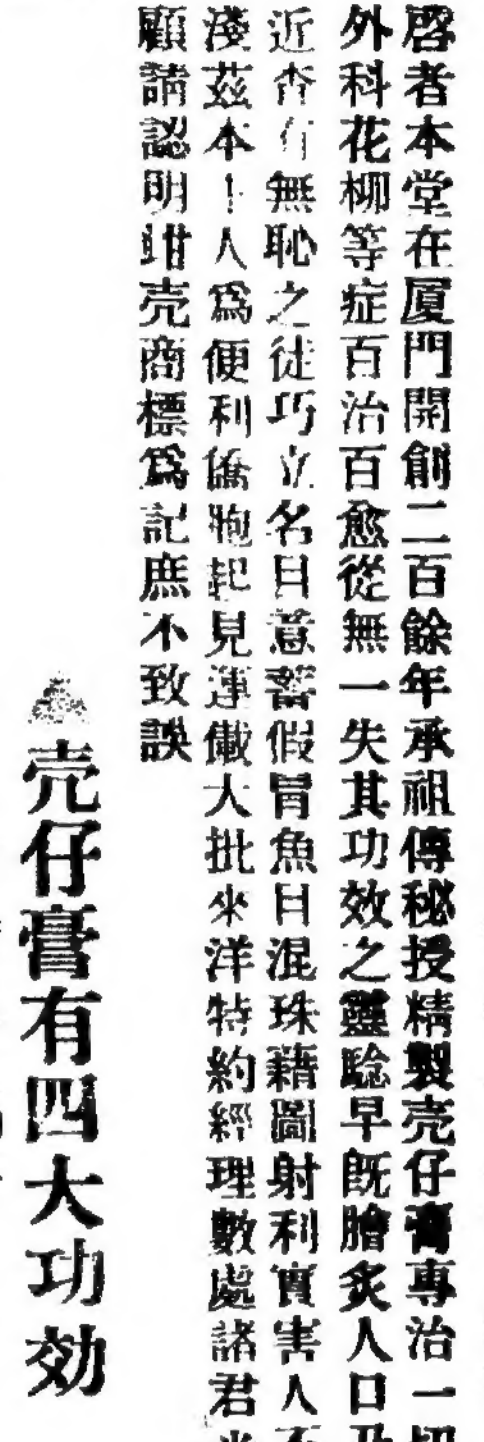 啓者本堂在厦門開創二百餘年承祖傳秘授精製壳仔膏專治一切
外科花柳等症百治百愈從無一失其功效之靈驗早既膾炙人口乃
近查有無恥之徒巧立名目意畱假冐魚目混珠藉圖射利實害人不
淺茲本主人爲便利僑胞起見運儎大批來洋特約經理數處諸君光
顧請認明蚶壳商標爲記庶不致誤
壳仔膏有四大功効